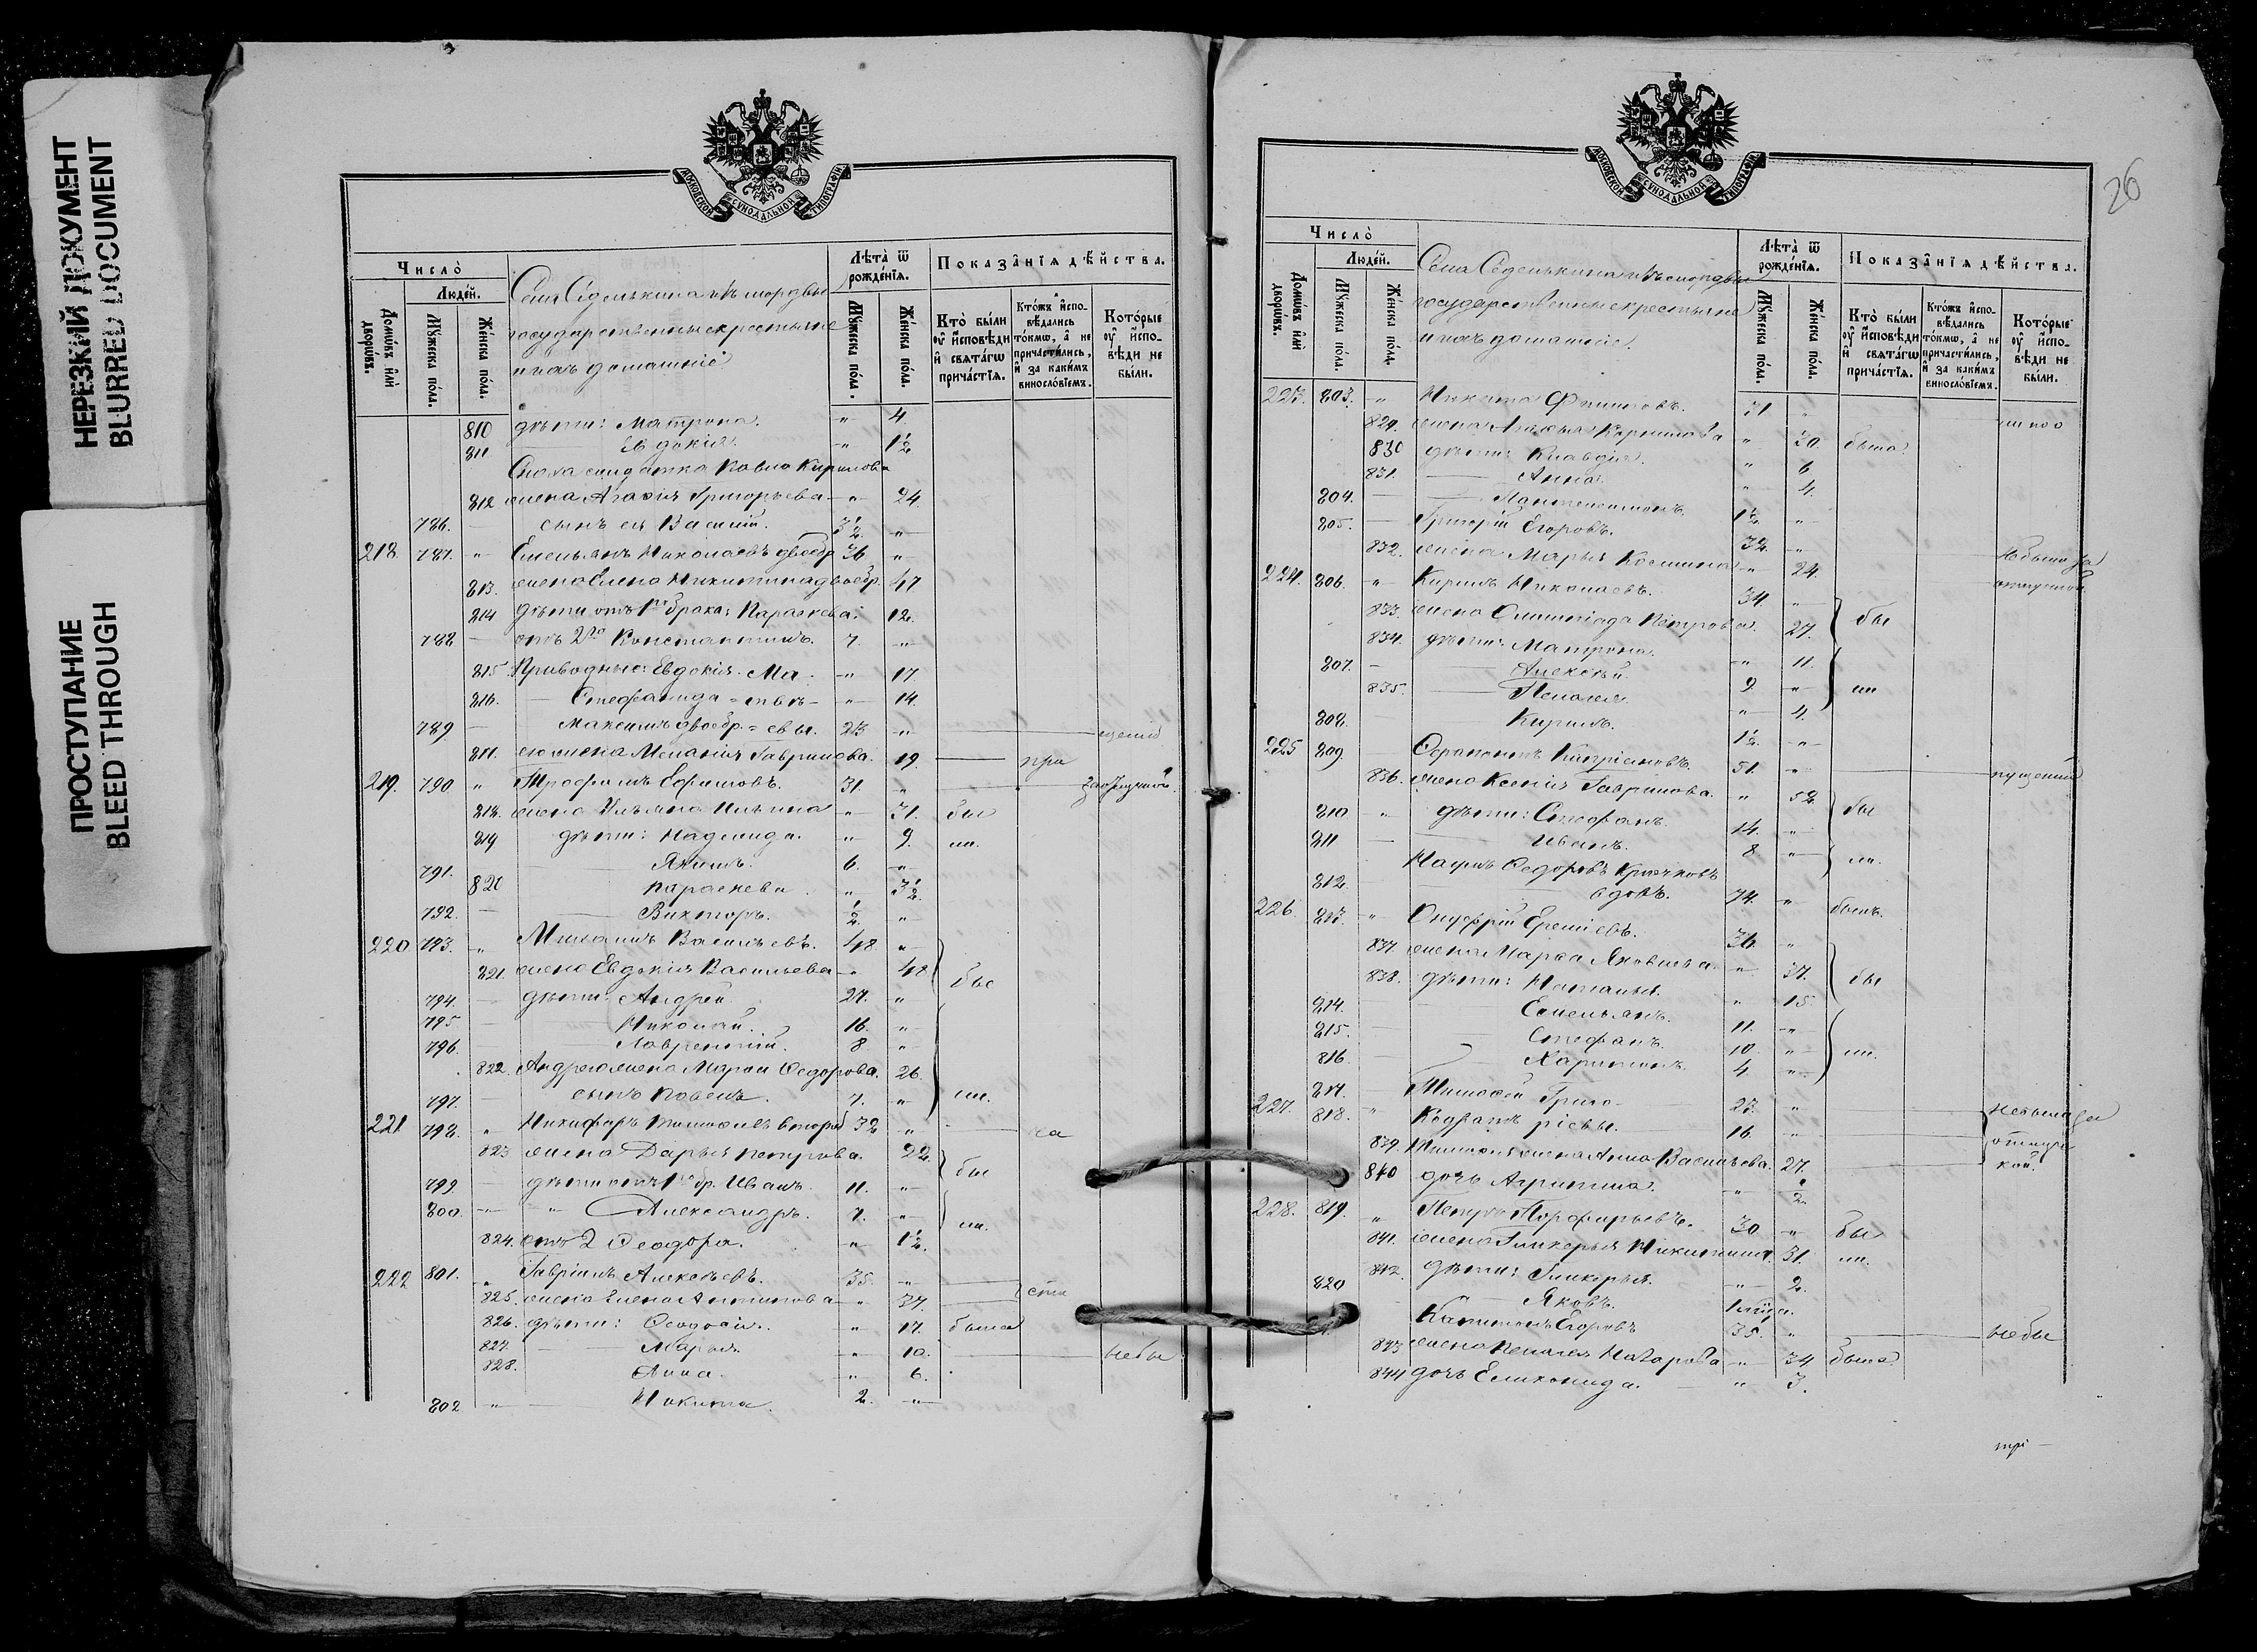 НЕРЕЗКИЙ ДОКУМЕНТ
BLURRED DOCUMENT
ПРОСТУПАНИЕ
BLEED THROUGH
МОСКОВСКОЙ СѴНОДАЛЬНОЙ ТИПОГРАФІИ
Число̀
Людей.
Домѡвъ илѝ дворѡвъ.
Мꙋжеска пола.
Женска пола.
Села Седелькина изъ мордвы
государственные крестьяне
и ихъ домашніе
Лѣта̀ ѿ рожденїѧ.
Мꙋжеска пола.
Женска пола.
Показанїѧ дѣйства.
Кто̀ были ᲂу҆ и҆сповѣди и҆ свѧтагѡ причастїѧ.
Ктожъ и҆сповѣдались токмѡ, а҆ не причастились, и҆ за какимъ винословїемъ.
Которые ᲂу҆ и҆сповѣди не были.
810 дѣти: Матрона. " 4.
811 Евдокія. " 1½
Сноха солдатка Павла Кирилова
812 жена Агафія Григорьева " 24.
786. — сынъ ея Василій. 3½ "
218 787. " Емельянъ Николаевъ двоебр. 36 "
813. жена Елена Никитина двоебр. 47
814 дѣти отъ 1го брака: Параскева. 12.
788 — отъ 2го Константинъ. 7. "
815. Приводные: Евдокія. Ма " 17
816. Стефанида = твѣ " 14.
789 — Максимъ двоебр. = евы. 23 "
817. его жена Меланія Гаврилова. 19. при
219. 790 " Трофимъ Ефимовъ. 31. "
818. жена Ульяна Ильина " 31. бы
819 дѣти: Надежида. " 9. ли.
791. Якимъ. 6. "
820 Параскева. " 3½
792. — Викторъ. ½ "
220 793. " Михаилъ Васильевъ. 48 "
821. жена Евдокія Васильева " 48 бы
794. — дѣти: Андрей. 27. "
795 — Николай. 16. "
796. Лаврентій. 8 "
822. Андрея жена Марѳа Ѳедорова. 26.
797. — сынъ Павелъ. 7. " ли.
221 798. " Никифоръ Тимоѳеевъ вторый 32 "
823 жена Дарья Петрова. 22.
799. — дѣти отъ 1го бр. Иванъ. 11. " бы
800. " Александръ. 7. "
824. отъ 2 Ѳеодора. " 1½. ли.
222 801. " Гавріилъ Алексѣевъ. 35. "
825. жена Елена Антипова " 37.
826. дѣти: Ѳеодосія. " 17. была
827. Марья. " 10. небы
828. Анна. " 6.
802 " Никита. 2. "
26
МОСКОВСКОЙ СѴНОДАЛЬНОЙ ТИПОГРАФІИ
Число̀
Людей.
Домѡвъ илѝ дворѡвъ.
Мꙋжеска пола.
Женска пола.
Села Седелькина изъ мордвы
государственные крестьяне
и ихъ домашніе.
Лѣта̀ ѿ рожденїѧ.
Мꙋжеска пола.
Женска пола.
Показанїѧ дѣйства.
Кто̀ были ᲂу҆ и҆сповѣди и҆ свѧтагѡ причастїѧ.
Ктожъ и҆сповѣдались токмѡ, а҆ не причастились, и҆ за какимъ винословїемъ.
Которые ᲂу҆ и҆сповѣди не были.
223. 803. " Никита Филиповъ. 31 "
829. жена Агафья Корнилова " 30 была
830 дѣти: Клавдія. " 6
831. Анна. " 4.
804. — Пантелеимонъ. 1½ "
805. — Григорій Егоровъ. 32. "
832. жена Марья Космина " 24. небыли за
224. 806. " Кирилъ Николаевъ. 34. " отлучкой
833. жена Олимпіада Петрова. 27. бы
834. дѣти: Матрона. " 11.
807. — Алексѣй. 9. "
835. Пелагея. " 4. ли
808. Кирилъ. 1½. "
225 809. Ѳерапонтъ Кипріановъ. 51. "
836. жена Ксенія Гаврилова. " 52
810 " дѣти: Стефанъ. 14. " бы
811 — Иванъ. 8 " ли.
Наумъ Ѳедоровъ Крючковъ
812. вдовъ. 74. " былъ.
226. 813. " Онуфрій Еремѣевъ. 36. "
837. жена Марѳа Яковлева. " 37.
838. дѣти: Наталья. " 15. бы
814. Емельянъ. 11. "
815. Стефанъ. 10. "
816 — Харитонъ. 4. " ли.
817. — Тимоѳей Григо- 23. "
227. 818. " Кодратъ рьевы. 16. " небыли за
839. Тимоѳея жена Анна Васильева. 27. отлуч
840 дочь Агрипина. " 2 кой.
228. 819. " Петръ Порфирьевъ. 30 " бы
841. жена Гликерья Никитина. 31. ли.
842. дѣти: Гликерья. " 2.
820 Яковъ. "
Капитонъ Егоровъ 35. " небы
843 жена Пелагея Назарова " 34 была
844 дочь Еликонида. " 3.
три —